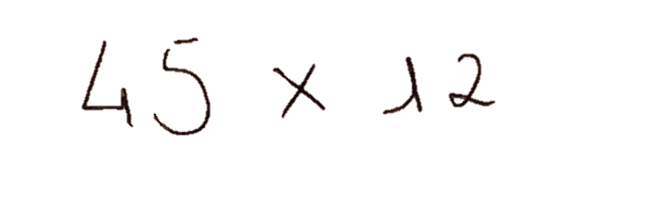 45 × 12